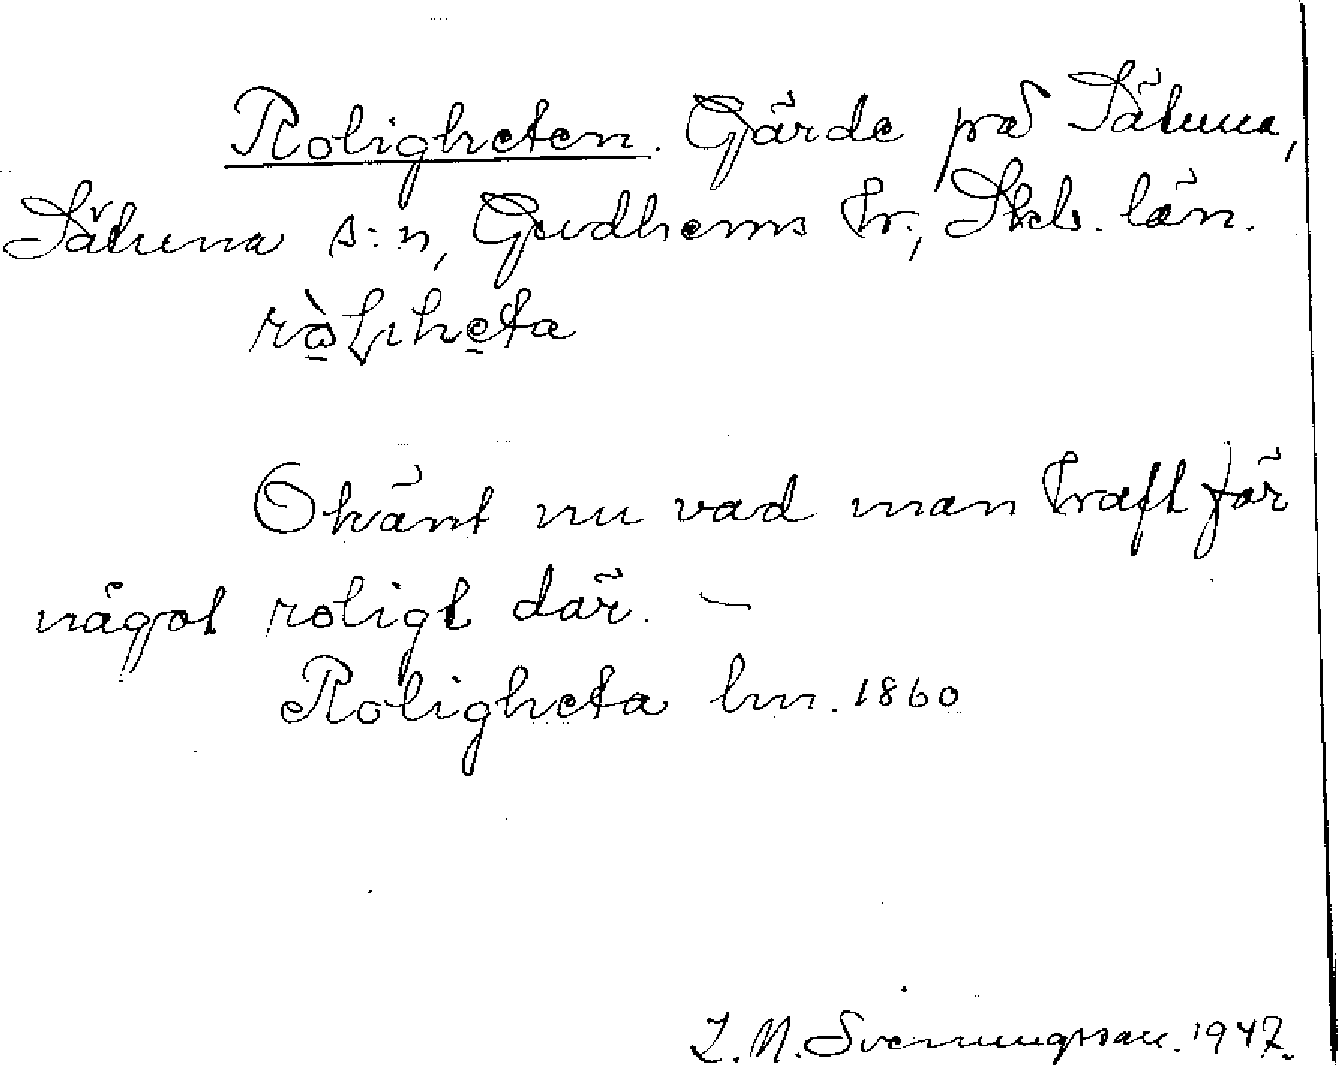 Roligheten. Gärde på Sätuna,
Sätuna s:n, Gudhems hr., Skb. län.
Okänt nu vad man haft för
något roligt där. –
Roligheta lm. 1860
Z. N. Svenungsson. 1947.